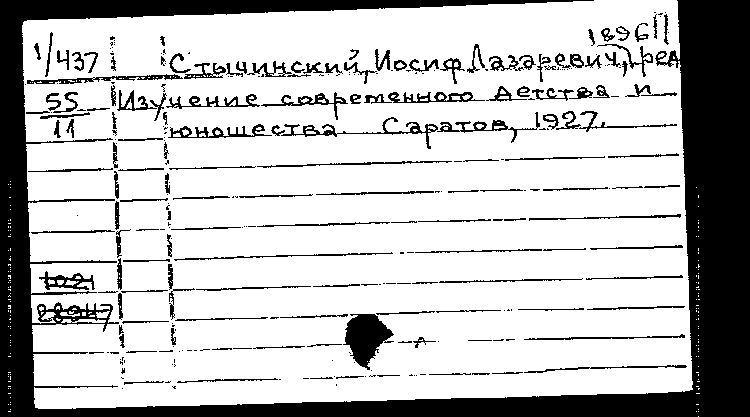 1896
1/437 Стычинский, Иосиф Лазаревич, ред
55 Изучение современного детства и
11 юношества. Саратов, 1927.